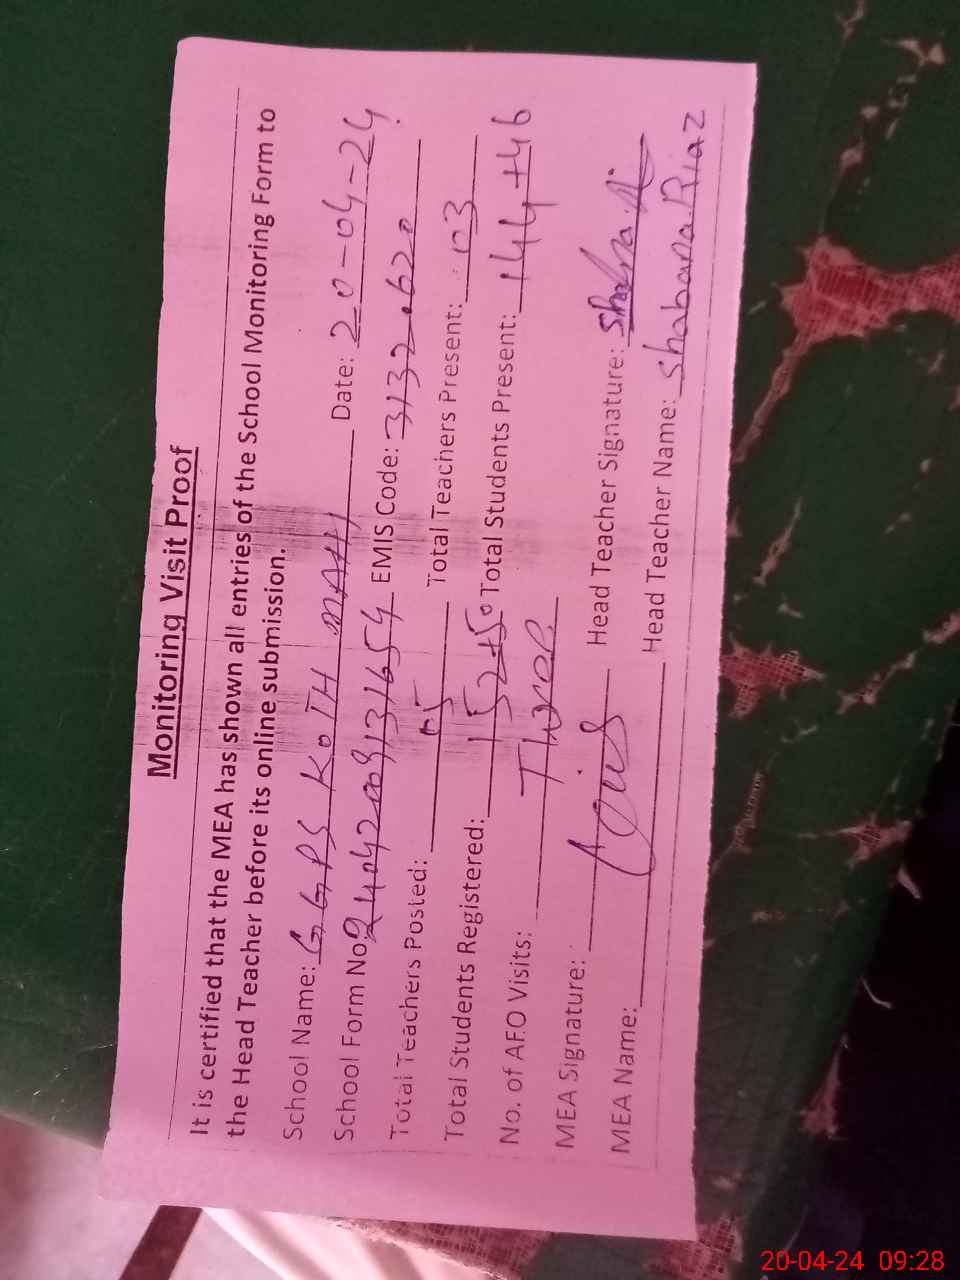 Monitoring Visit Proof
It is certified that the MEA has shown all entries of the School Monitoring Form to
the Head Teacher before its online submission.
School Name: GGPS KOTH Date: 20-04-24
School Form No EMIS Code: 31320620
Total Teachers Posted: 05 Total Teachers Present: 03
Total Students Registered: 152+50 Total Students Present: 144+46
No. of AEO Visits: Three
MEA Signature: Head Teacher Signature:
MEA Name: Head Teacher Name: Shabana Riaz
20-04-24 09:28